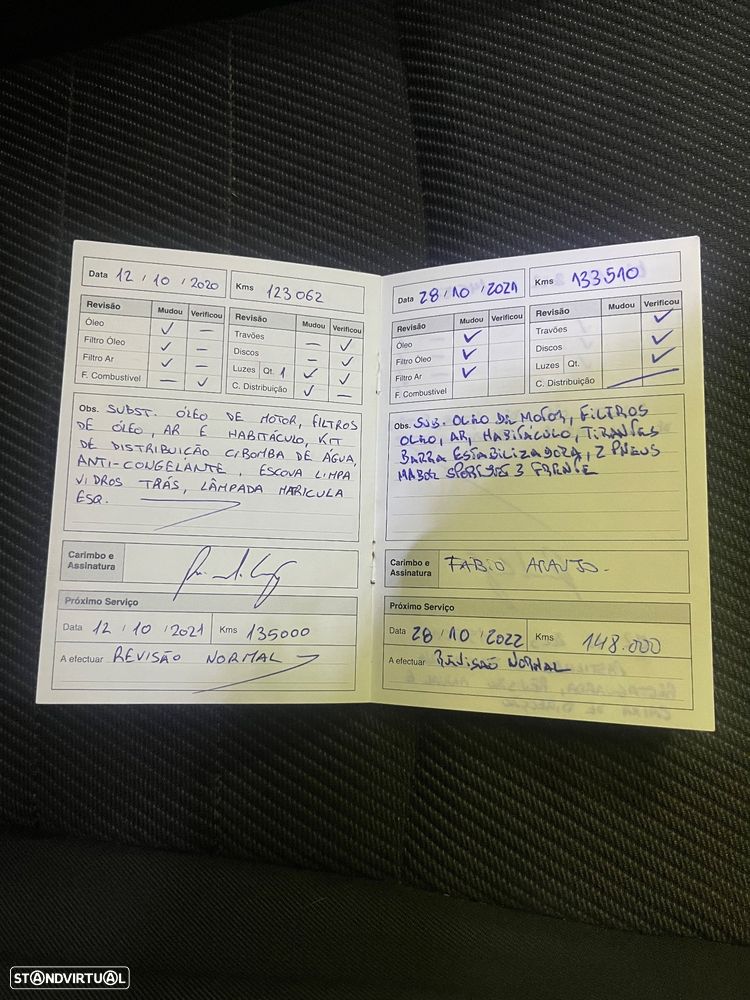 Data 12 / 10 / 2020 Kms 123 062
Revisão Mudou Verificou
Óleo ✓ —
Filtro Óleo ✓ —
Filtro Ar ✓ —
F. Combustivel — ✓
Revisão Mudou Verificou
Travões — ✓
Discos — ✓
Luzes Qt. 1 ✓ ✓
C. Distribuição ✓ —
Obs. SUBST. ÓLEO DE MOTOR, FILTROS
DE ÓLEO, AR E HABITÁCULO, KIT
DE DISTRIBUIÇÃO C/BOMBA DE ÁGUA,
ANTI-CONGELANTE, ESCOVA LIMPA
VIDROS TRÁS, LÂMPADA MARICULA
ESQ.
Carimbo e
Assinatura
Próximo Serviço
Data 12 / 10 / 2021 Kms 135000
A efectuar REVISÃO NORMAL
Data 28 / 10 / 2021 Kms 133.510
Revisão Mudou Verificou
Óleo ✓
Filtro Óleo ✓
Filtro Ar ✓
F. Combustivel
Revisão Mudou Verificou
Travões ✓
Discos ✓
Luzes Qt. ✓
C. Distribuição
Obs. SUB. OLEO DE MOTOR, FILTROS
OLEO, AR, HABITÁCULO, TIRANTES
BARRA ESTABILIZADORA, 2 PNEUS
MABOR 3 FRENTE
Carimbo e
Assinatura FABIO ARAUJO.
Próximo Serviço
Data 28 / 10 / 2022 Kms 148.000
A efectuar REVISÃO NORMAL
STANDVIRTUAL